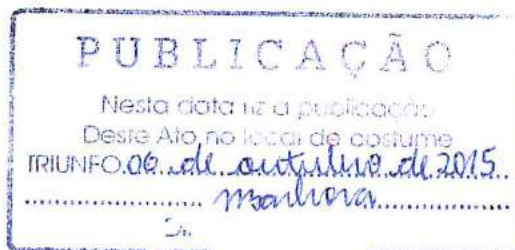 PUBLICAÇÃO
Nesta data fiz a publicação
Deste Ato no local de costume
TRIUNFO.06 de outubro de 2015